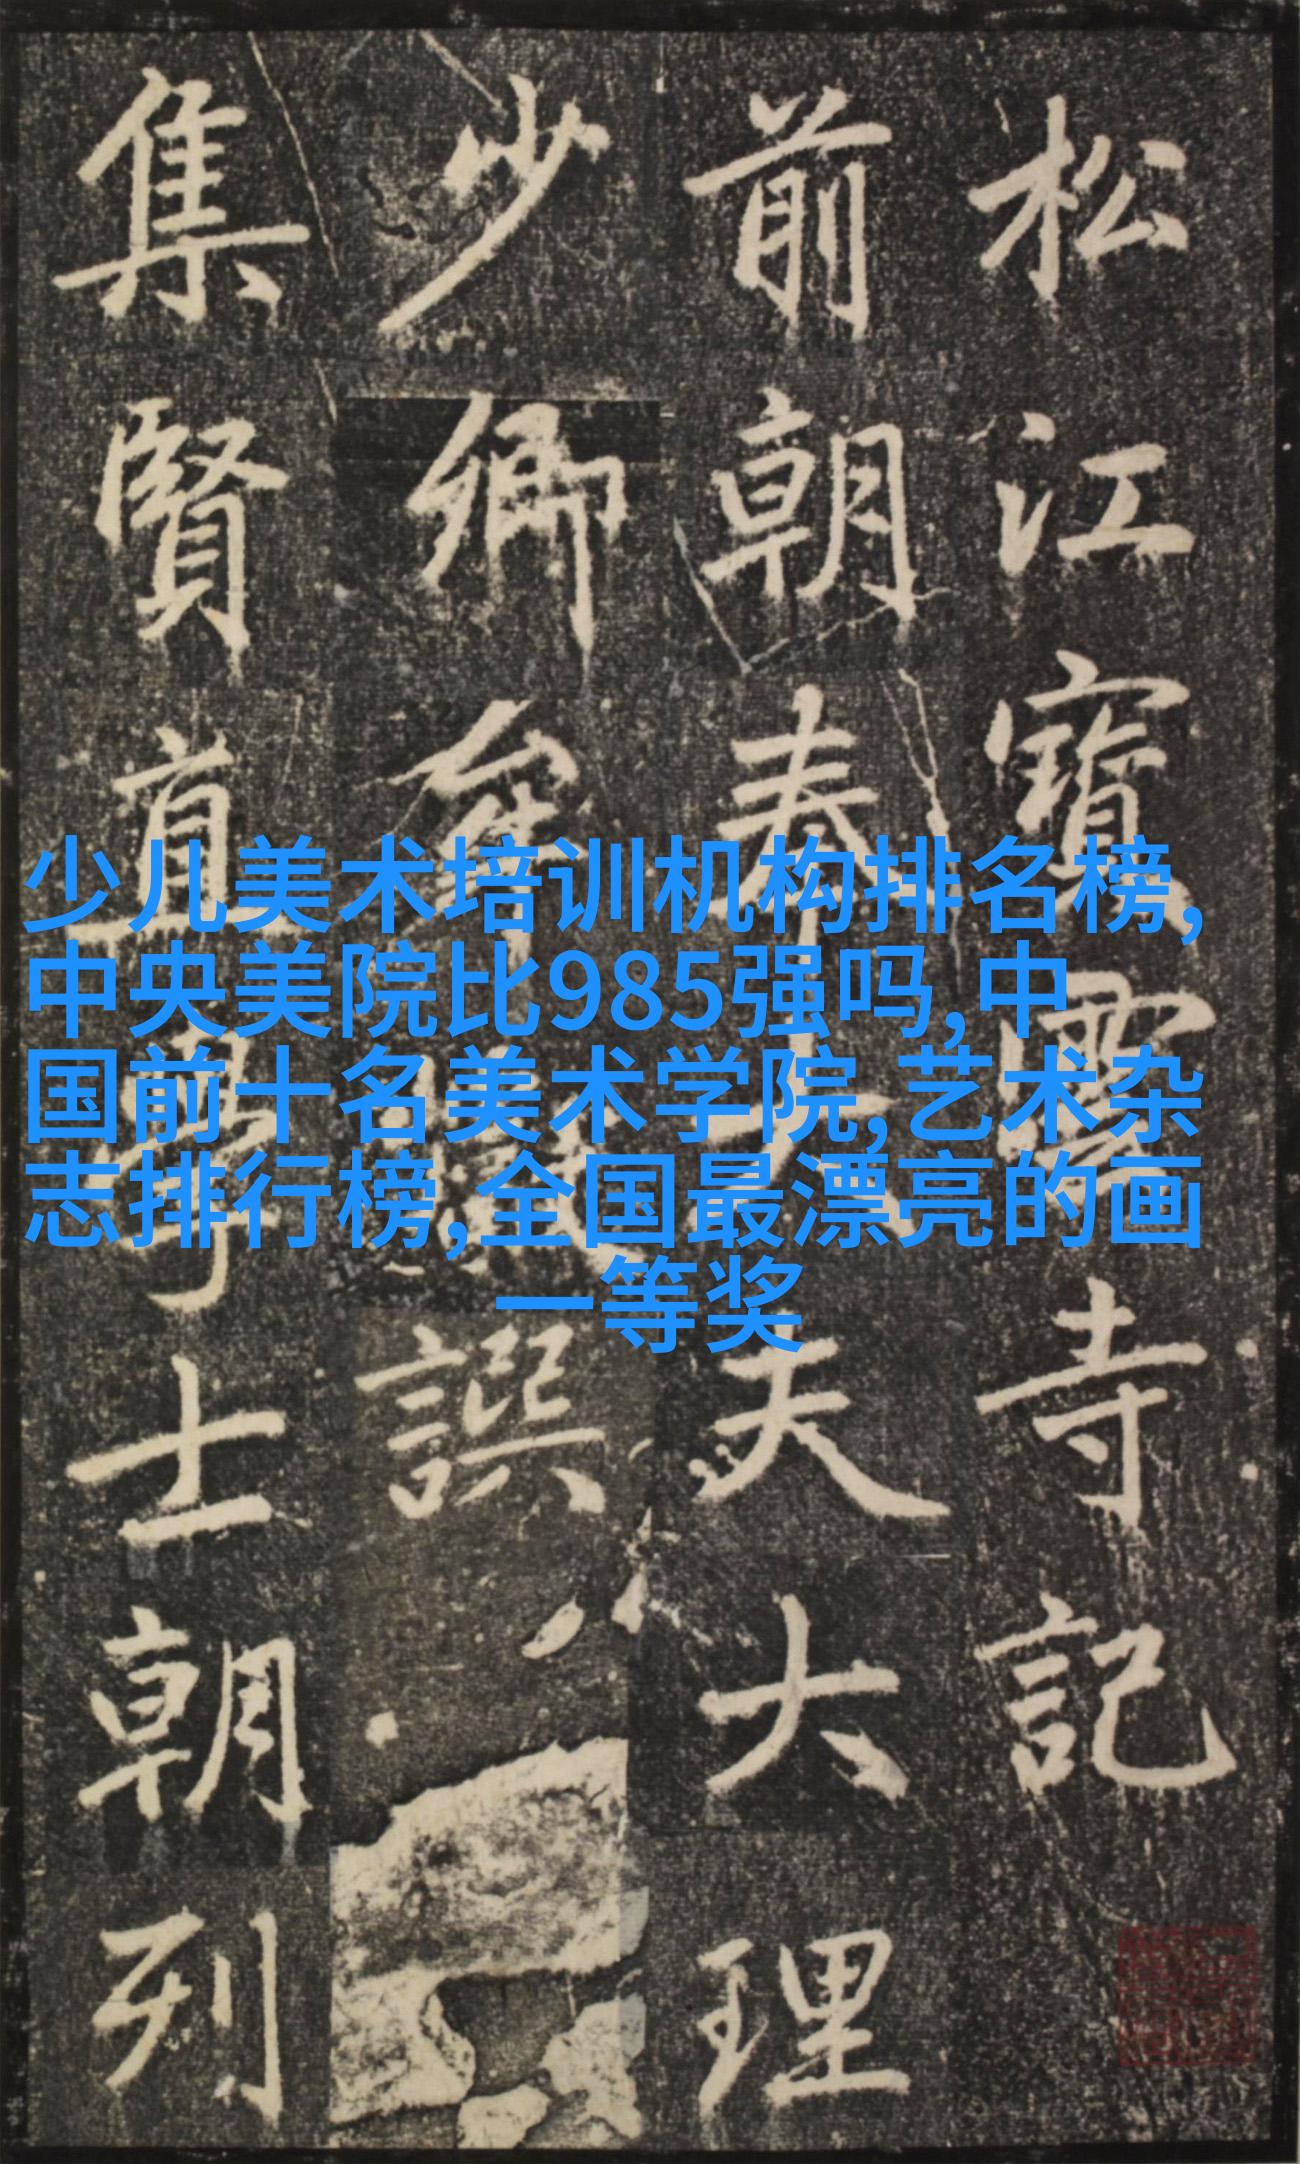 松江寶雲寺記
前朝奉大夫大理
少卿牟巘譔
集賢直學士朝列
少儿美术培训机构排名榜,
中央美院比985强吗,中
国前十名美术学院,艺术杂
志排行榜,全国最漂亮的画
一等奖